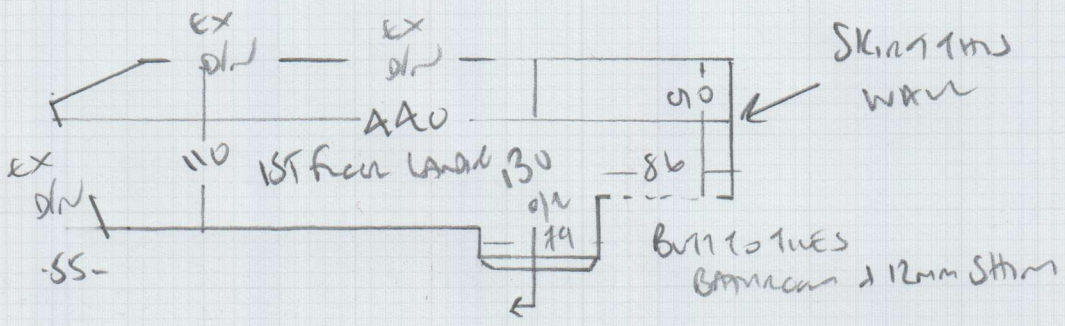 EX
D/W
EX
D/W
SKIRT THIS
WALL
90
440
EX
D/W
110
1ST FLOOR LANDIN
130
86
O/N
79
-55-
BUTT TO TILES
BATHROOM & 12MM SHIM